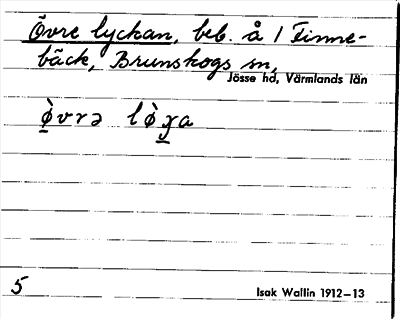 Övre lyckan, beb. å 1 Finne-
bäck, Brunskogs sn,
Jösse hd, Värmlands län
ò̱vrə lò̱ꭓa
5
Isak Wallin 1912–13